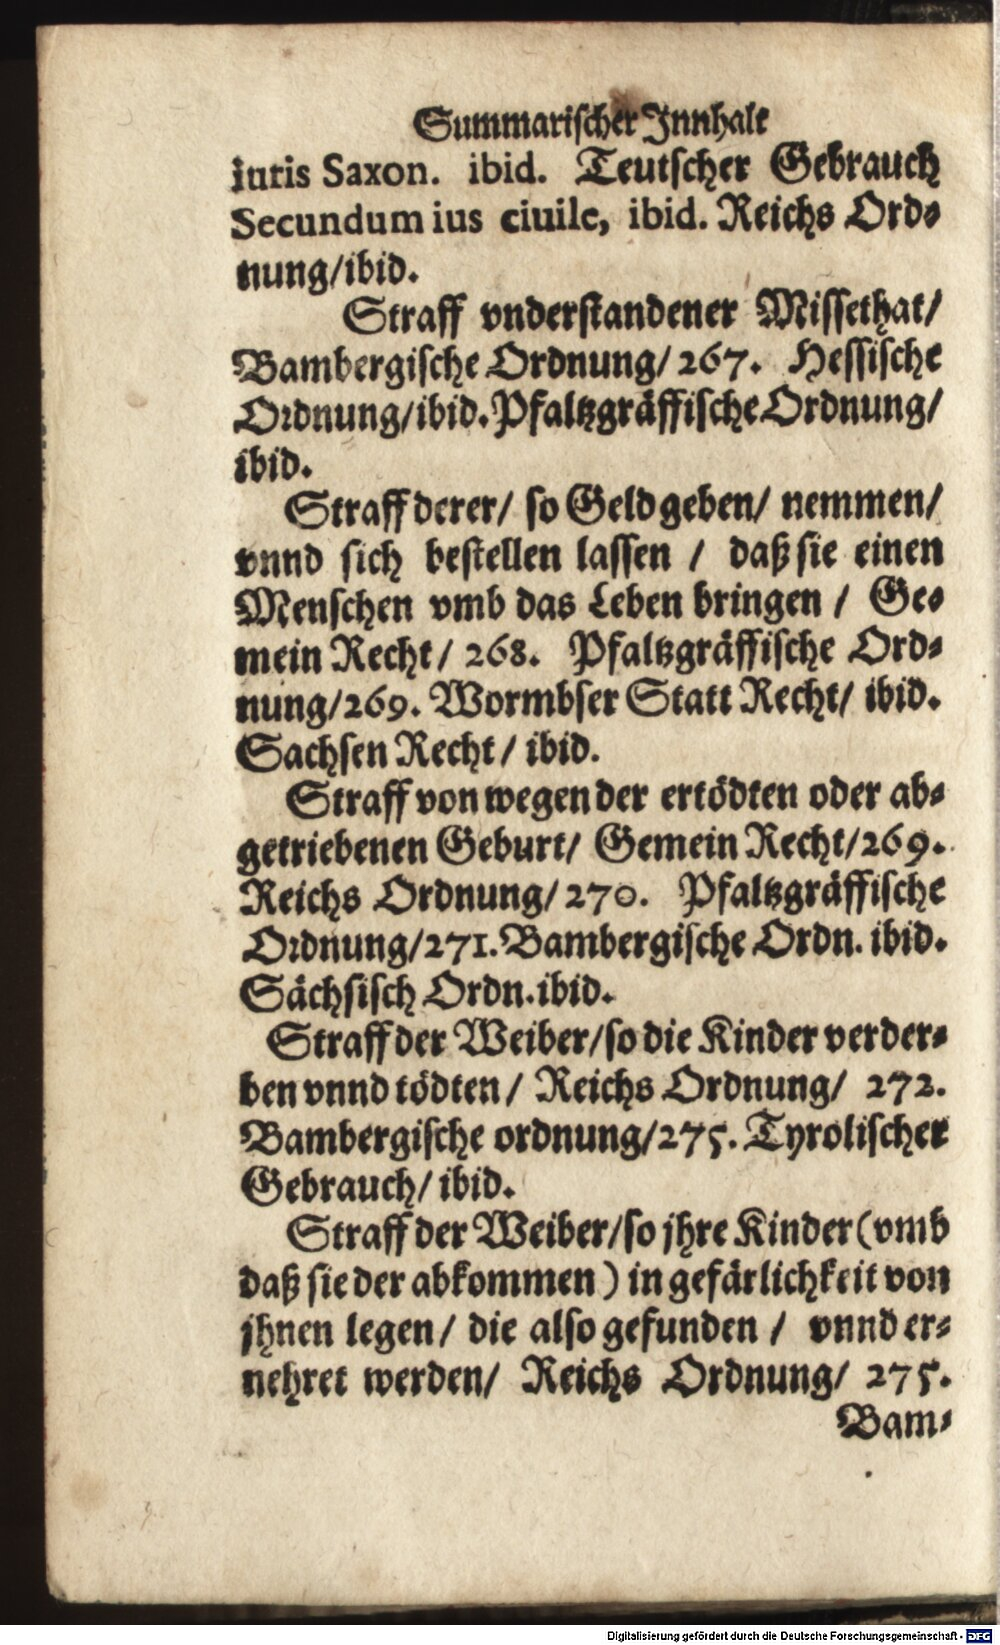 Summarischer Innhalt
iuris Saxon. ibid. Teutscher Gebrauch
Secundum ius ciuile, ibid. Reichs Ord-
nung/ibid.
Straff vnderstandener Missethat/
Bambergische Ordnung/ 267. Hessische
Ordnung/ibid. Pfaltzgräffische Ordnung/
ibid.
Straff derer/ so Geld geben/ nemmen/
vnnd sich bestellen lassen / daß sie einen
Menschen vmb das Leben bringen / Ge-
mein Recht/ 268. Pfaltzgräffische Ord-
nung/269. Wormbser Statt Recht/ ibid.
Sachsen Recht/ ibid.
Straff von wegen der ertödten oder ab-
getriebenen Geburt/ Gemein Recht/269.
Reichs Ordnung/ 270. Pfaltzgräffische
Ordnung/271. Bambergische Ordn. ibid.
Sächsisch Ordn. ibid.
Straff der Weiber/so die Kinder verder-
ben vnnd tödten/ Reichs Ordnung/ 272.
Bambergische ordnung/275. Tyrolischer
Gebrauch/ ibid.
Straff der Weiber/so jhre Kinder (vmb
daß sie der abkommen) in gefärlichkeit von
jhnen legen/ die also gefunden / vnnd er-
nehret werden/ Reichs Ordnung/ 275.
Bam-
Digitalisierung gefördert durch die Deutsche Forschungsgemeinschaft - DFG